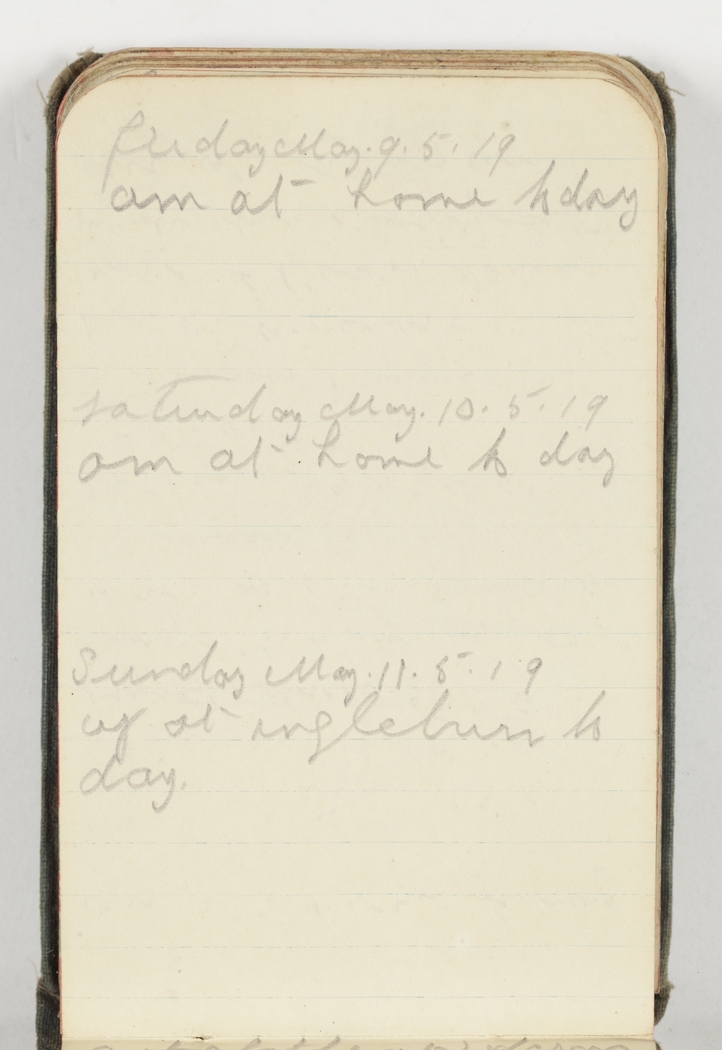 friday May. 9. 5. 19
am at home to day
saturday May. 10. 5. 19
am at home to day
Sunday May. 11. 5. 19
up at ingleburn to
day.